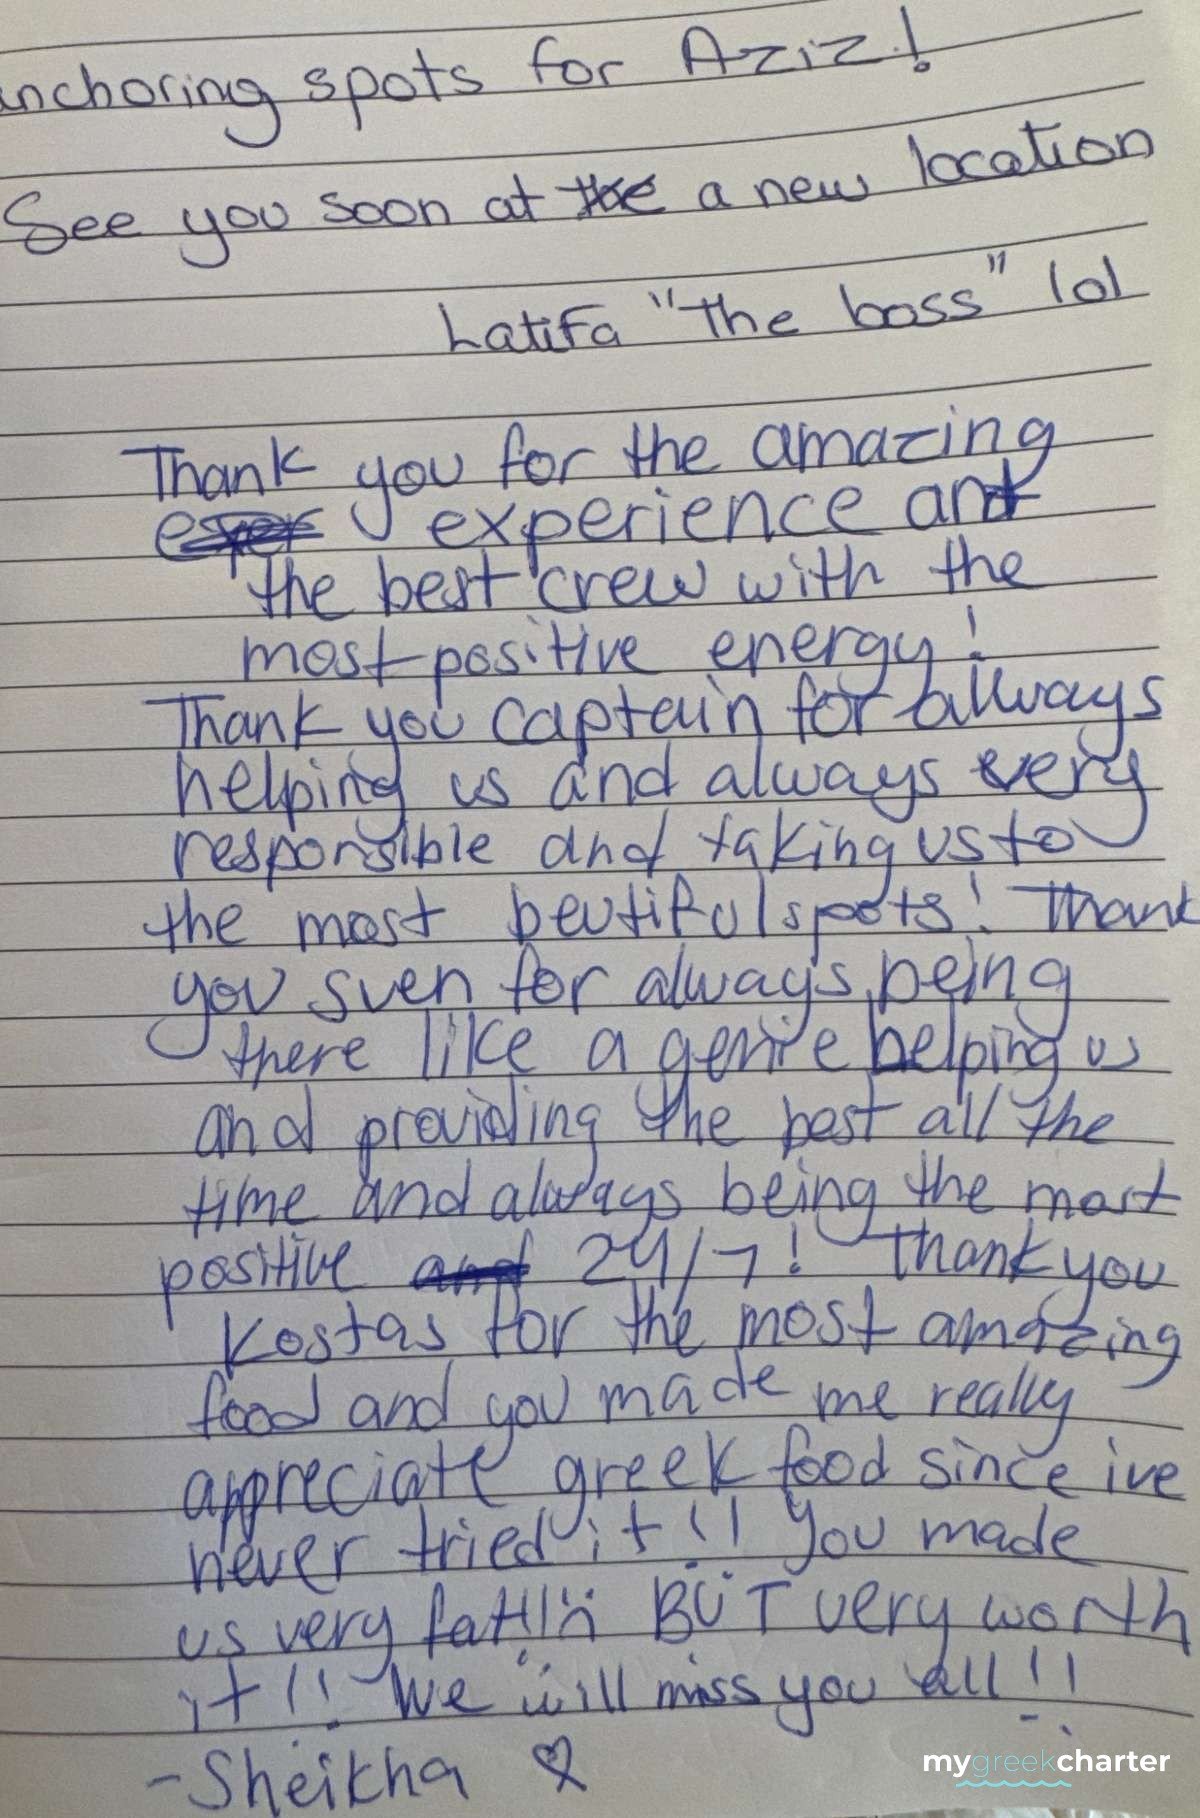 anchoring spots for Aziz!
See you soon at the a new location
Latifa "the boss" lol
Thank you for the amazing
exper experience and
the best crew with the
most positive energy!
Thank you captain for always
helping us and always very
responsible and taking us to
the most beutiful spots! Thank
you sven for always being
there like a genie helping us
and providing the best all the
time and always being the most
positive and 24/7! Thank you
Kostas for the most amazing
food and you made me really
appreciate greek food since ive
never tried it!! You made
us very fat!!! BUT very worth
it!! We will miss you all!!
-Sheikha ♡
mygreekcharter